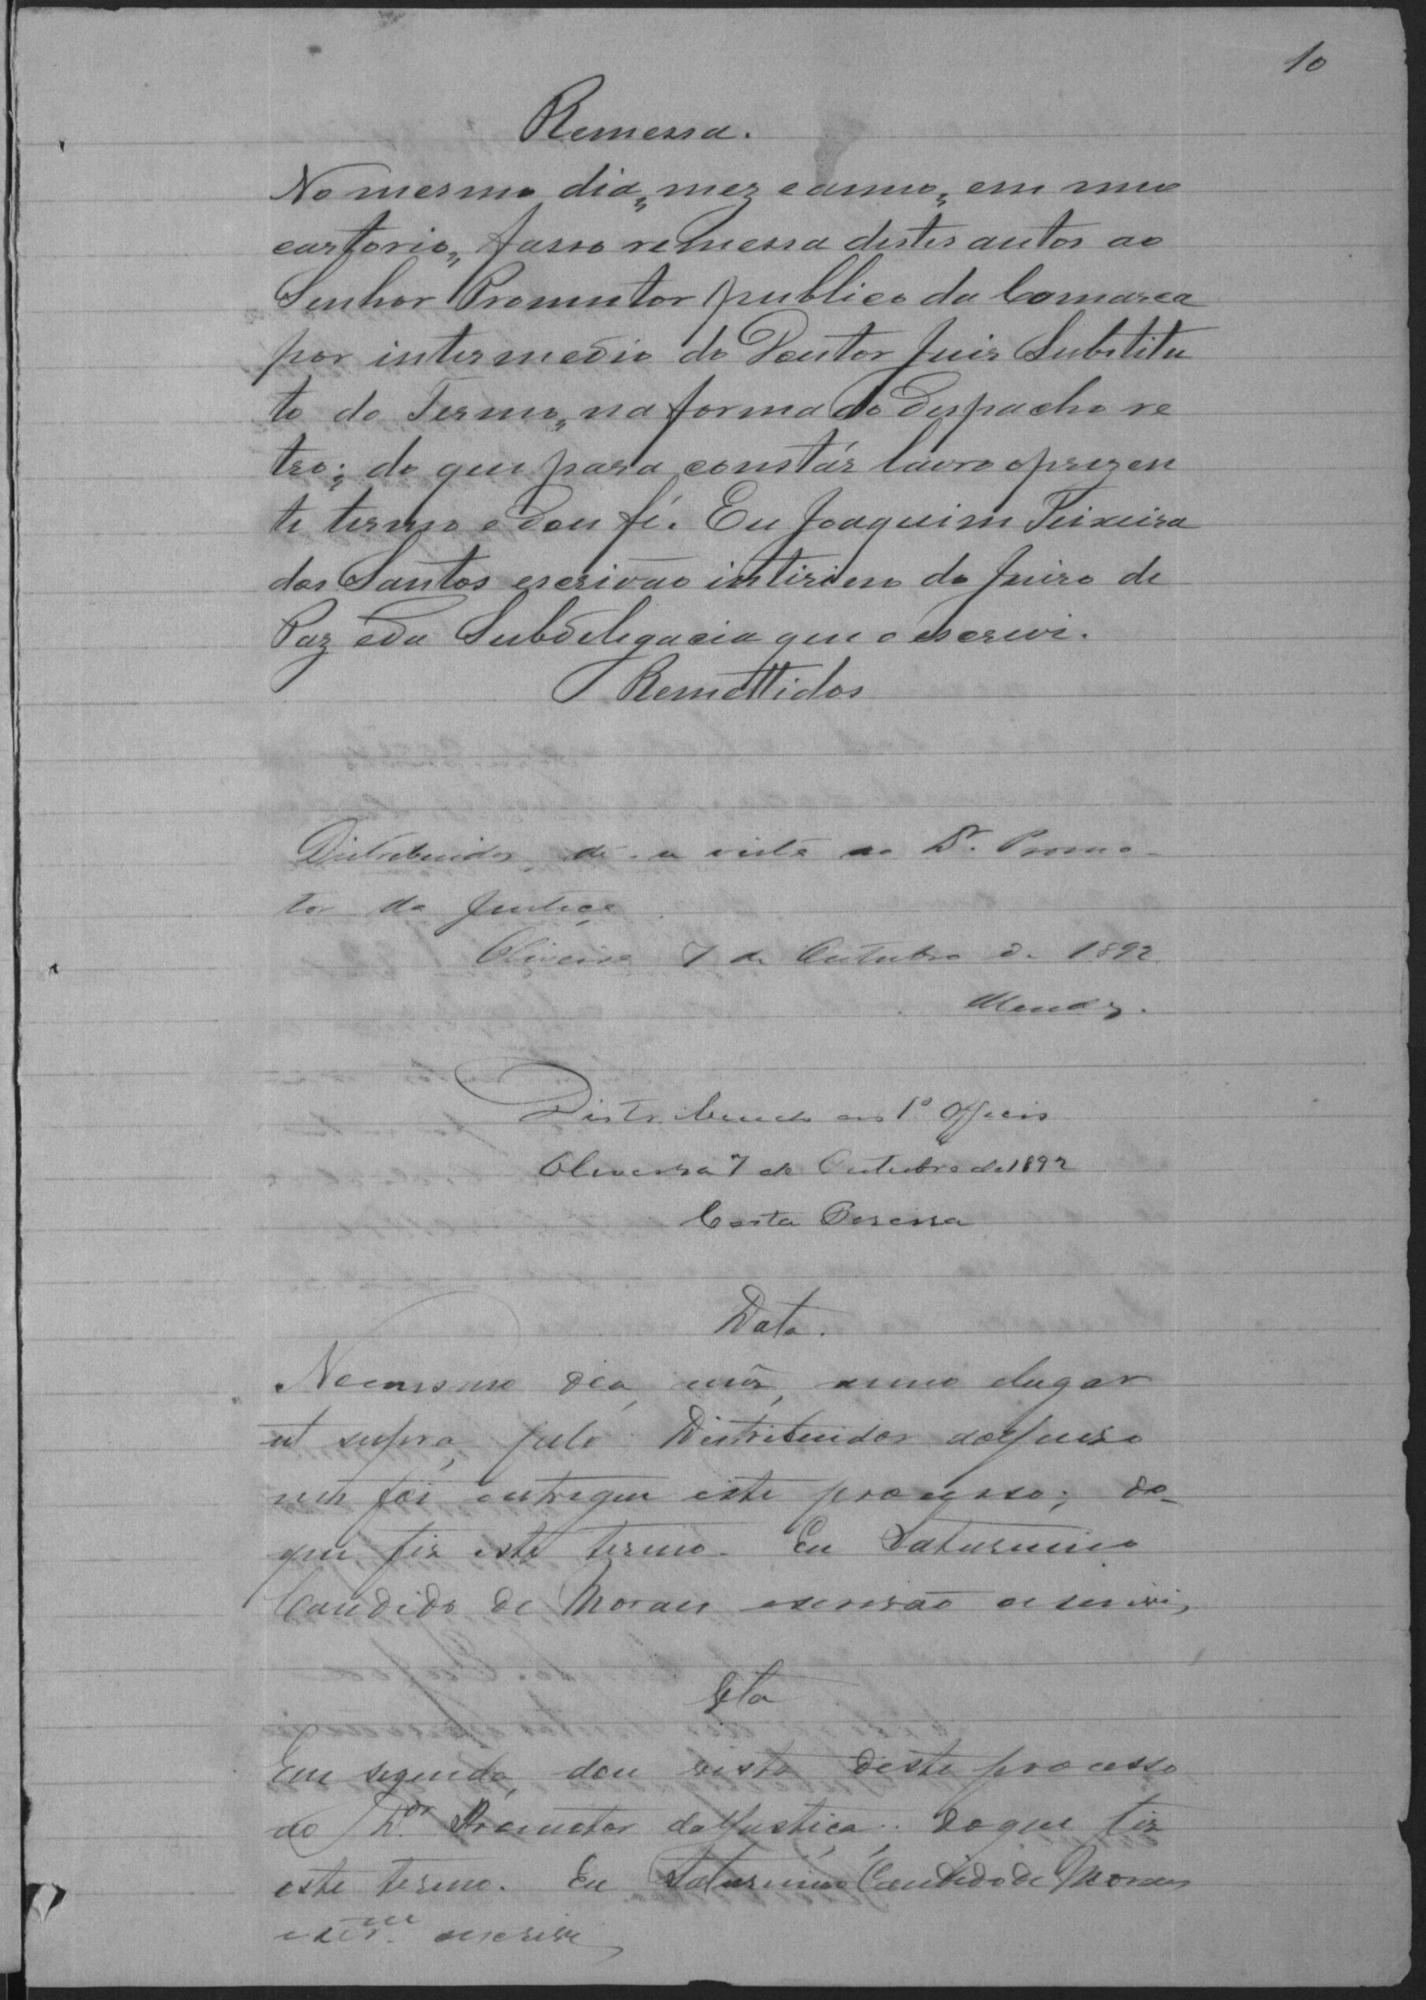 10
Remessa.
No mesmo dia, mez e anno, em meu
cartorio, fasso remessa destes autos ao
Senhor Promutor publico da Comarca
por intermedio do Doutor Juis Substitu
to do Termo, na forma do despacho re
tro; do que para constár lavro o prezen
te termo e dou fé. Eu Joaquim Teixeira
dos Santos escrivão intirino do Juizo de
Paz e da Subdelegacia que o escrevi.
Remettidos
Distribuidos, dê-se vista ao Dr. Promo-
tor da Justiça
Oliveira 7 de Outubro de 1892
Mendes.
Distribuido ao 1º Officio
Oliveira 7 de Outubro de 1892
Costa Pereira
Data.
No mesmo dia, mês, anno e lugar
ut supra, pelo Distribuidor do Juizo
me foi entregue este processo; do-
que fiz este termo. Eu Saturnino
Candido de Moraes escrivão o escrivi,
Em seguida, dou vista deste processo
ao Dr. Promotor da Justiça; do que fiz
este termo. Eu Saturnino Candido de Moraes
escrivi